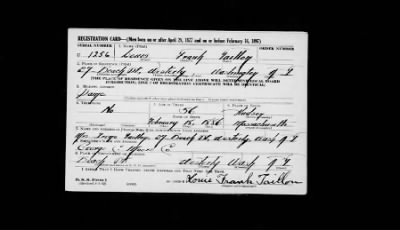 REGISTRATION CARD—(Men born on or after April 28, 1877 and on or before February 16, 1897)
SERIAL NUMBER 1. NAME (Print) ORDER NUMBER
1256 Louis Frank Taillon
2. PLACE OF RESIDENCE (Print)
27 Beach St. Westerly Washington R I
[THE PLACE OF RESIDENCE GIVEN ON THE LINE ABOVE WILL DETERMINE LOCAL BOARD
JURISDICTION; LINE 2 OF REGISTRATION CERTIFICATE WILL BE IDENTICAL]
3. MAILING ADDRESS
Same
4. TELEPHONE 5. AGE IN YEARS 6. PLACE OF BIRTH
No 56
DATE OF BIRTH
February 15, 1886 Massachusetts
7. NAME AND ADDRESS OF PERSON WHO WILL ALWAYS KNOW YOUR ADDRESS
Mrs. Taillon 27 Beach St. Westerly, Wash R I
8. EMPLOYER'S NAME AND ADDRESS
Co.
9. PLACE OF EMPLOYMENT OR BUSINESS
St. Westerly Wash R I
I AFFIRM THAT I HAVE VERIFIED ABOVE ANSWERS AND THAT THEY ARE TRUE.
D. S. S. Form 1
Louis Frank Taillon